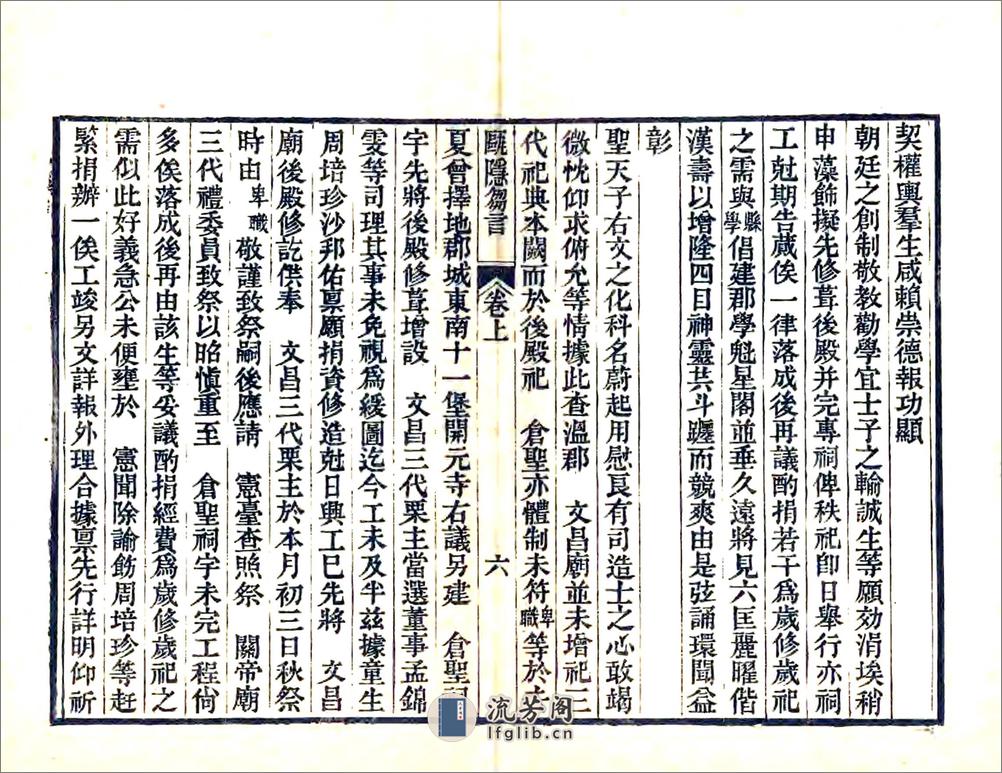 契權輿羣生咸賴崇德報功顯
朝廷之創制敬教勸學宜士子之輸誠生等願効涓埃稍
申藻飾擬先修葺後殿并完專祠俾秩祀即日舉行亦祠
工尅期告蕆俟一律落成後再議酌捐若干爲歲修歲祀
之需與縣學倡建郡學魁星閣並垂久遠將見六匡麗曜偕
漢壽以增隆四目神靈共斗躔而競爽由是弦誦環聞益
彰
聖天子右文之化科名蔚起用慰良有司造士之心敢竭
微忱仰求俯允等情據此查溫郡 文昌廟並未增祀三
代祀典本闕而於後殿祀 倉聖亦體制未符卑職等於
甌隱芻言 卷上 六
夏曾擇地郡城東南十一堡開元寺右議另建 倉聖祠
宇先將後殿修葺增設 文昌三代栗主當選董事孟錦
雯等司理其事未免視爲緩圖迄今工未及半茲據童生
周培珍沙邦佑稟願捐資修造尅日興工已先將 文昌
廟後殿修訖供奉 文昌三代栗主於本月初三日秋祭
時由卑職敬謹致祭嗣後應請 憲臺查照祭 關帝廟
三代禮委員致祭以昭愼重至 倉聖祠宇未完工程尙
多俟落成後再由該生等妥議酌捐經費爲歲修歲祀之
需似此好義急公未便壅於 憲聞除諭飭周培珍等赶
緊捐辦一俟工竣另文詳報外理合據稟先行詳明仰祈
流芳閣
lfglib.cn